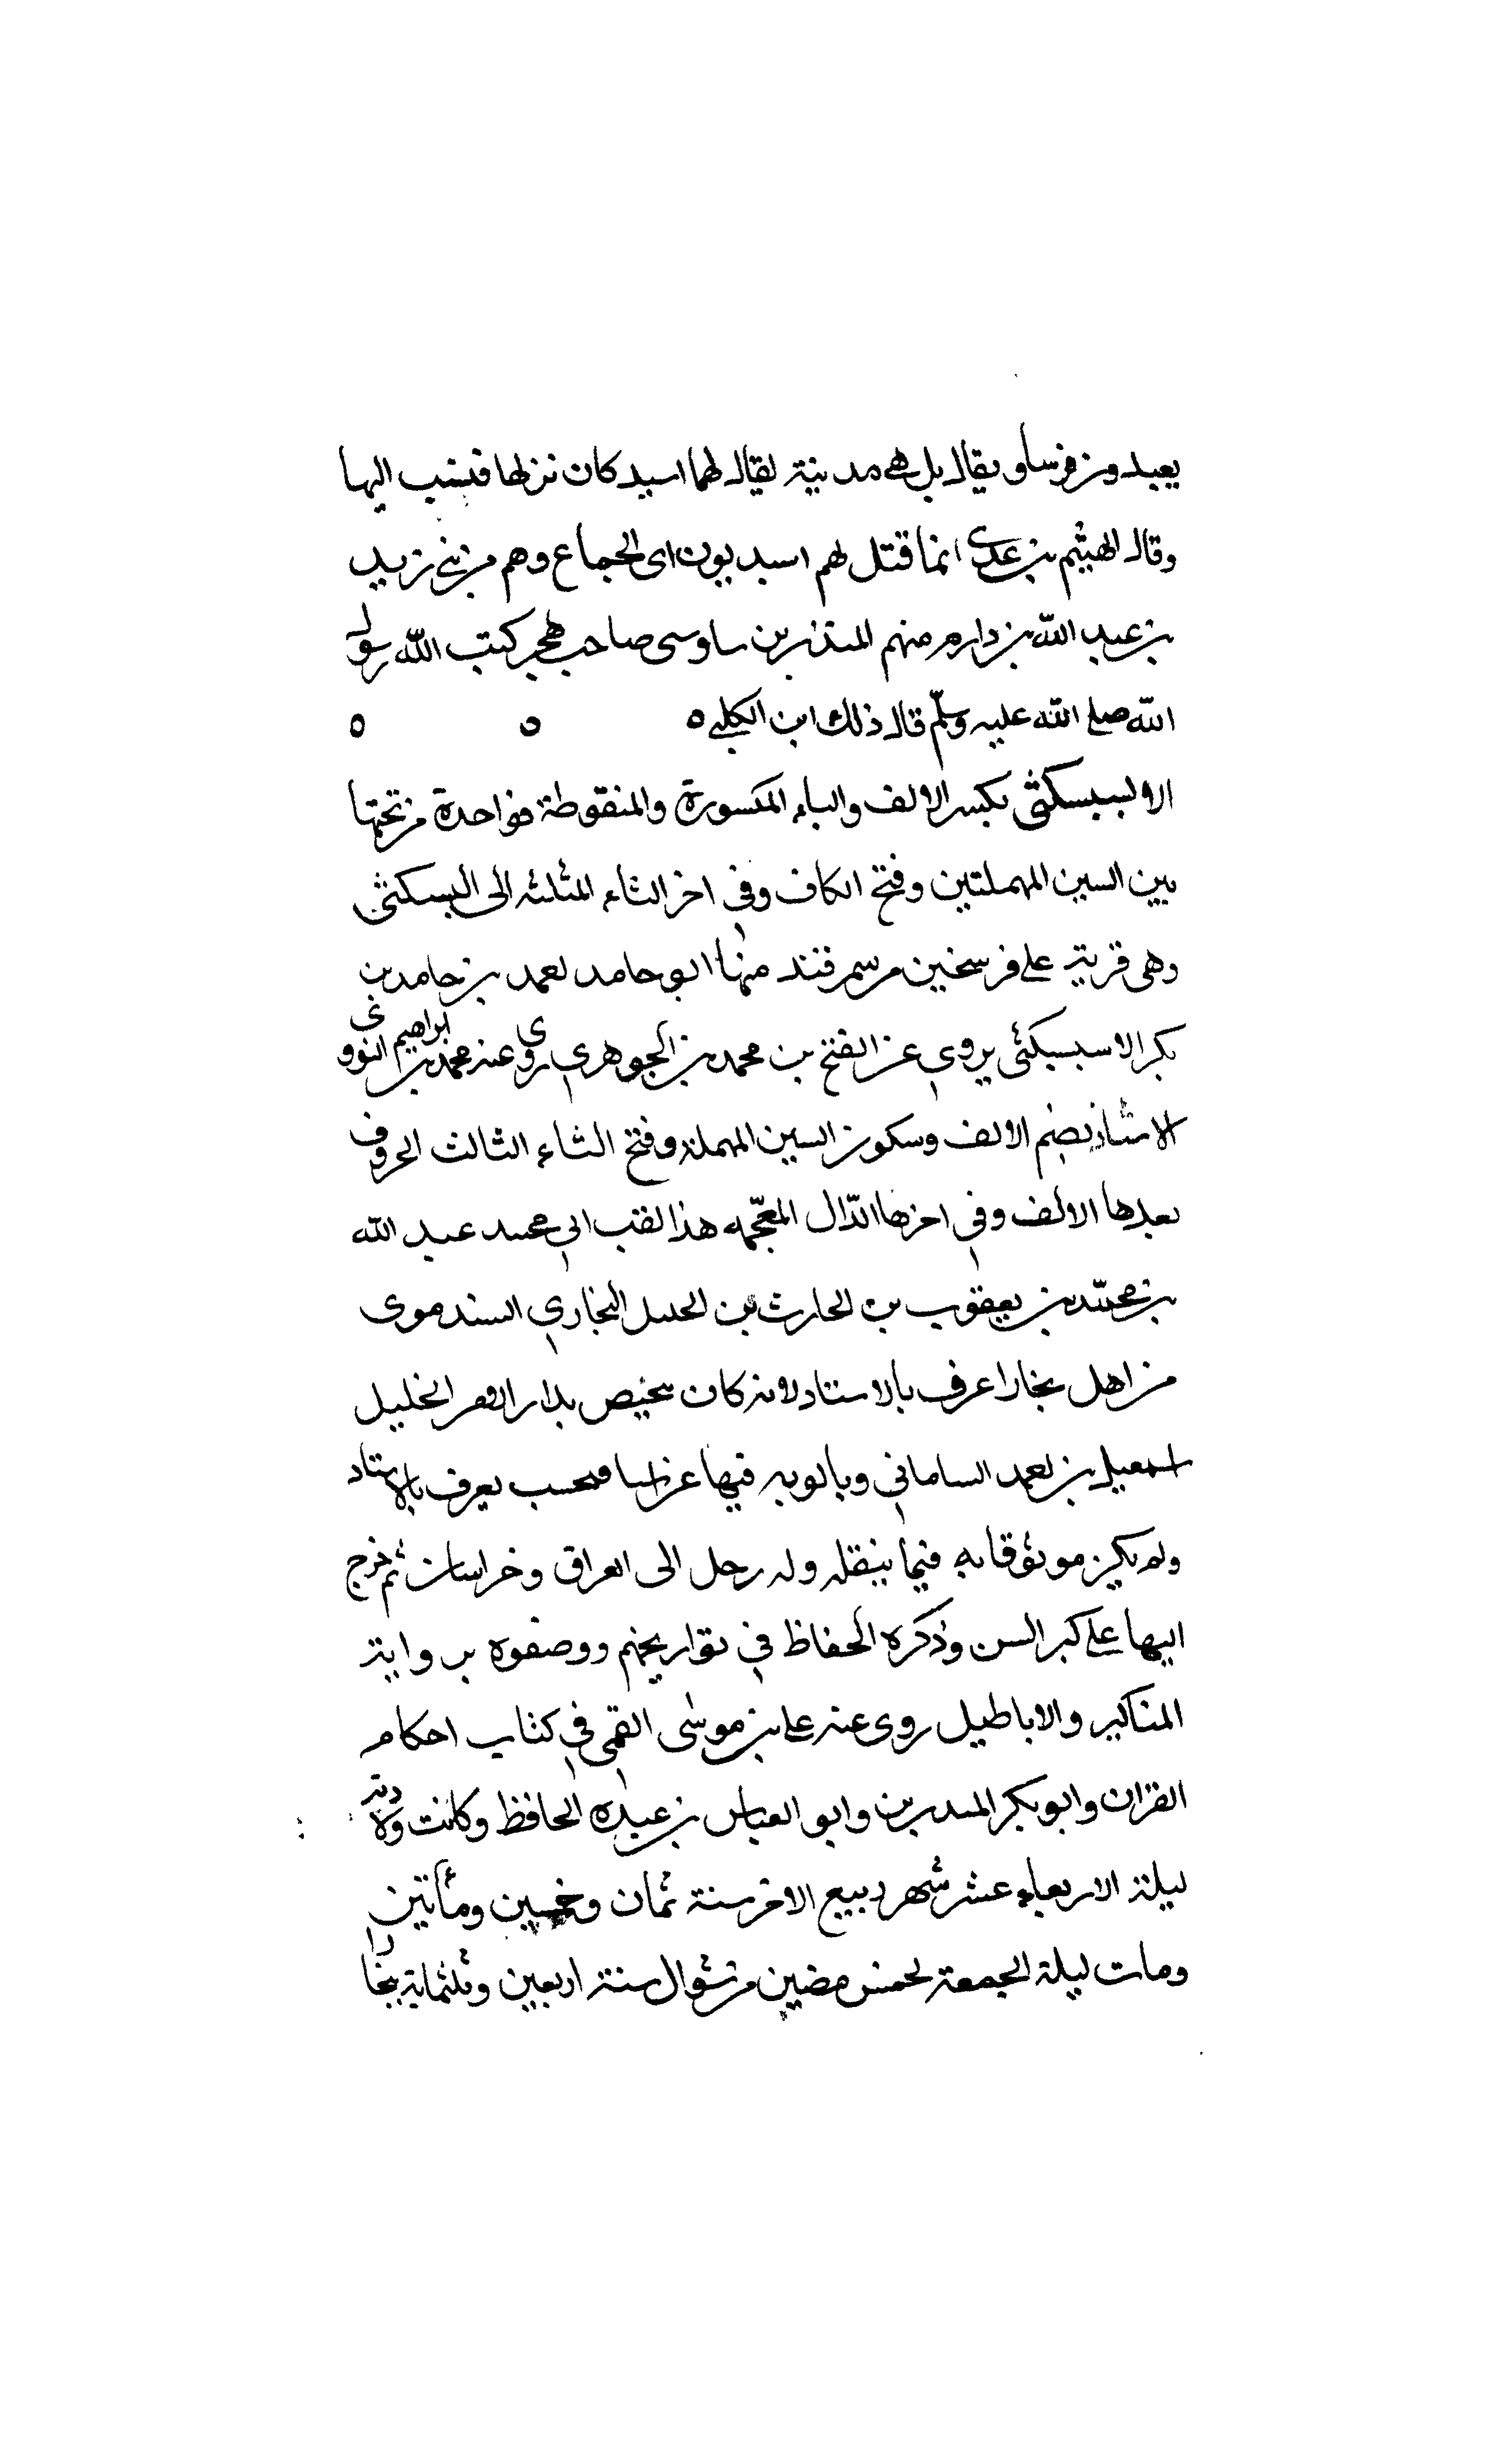 يعبدون فرسا ويقال بل هي مدينة يقال لها اسبد كان نزلها فنسب اليها
وقال الهيثم بن عدى انما قتل لهم اسبديون اى الجماع وهم من بني زيد
بن عبد الله بن دارم منهم المنذر بن ساوى صاحب هجر كتب الله رسول
الله صلى الله عليه وسلم قال ذلك ابن الكلبي ه ه ه
الاسبسكثى بكسر الالف والباء المكسورة والمنقوطة بواحدة من تحتها
بين السين المهملتين وفتح الكاف وفي اخر الثاء المثلثه الى البسكثى
وهى قرية على فرسخين من سمرقند منها ابو حامد احمد بن حامد بن
بكر الاسبسكثى يروى عن الفتح بن محمد بن الجوهرى روى عنه محمد بن ابراهيم النووى
الاستاذ بضم الالف وسكون السين المهملة وفتح الثاء الثالث الحروف
بعدها الالف وفي اخرها الذال المعجمه هذا لقب ابى محمد عبد الله
بن محمد بن يعقوب بن الحارث بن الخليل البخارى السندموى
من اهل بخارا عرف بالاستاد لانه كان يختص بدار الامر الجليل
اسمعيل بن احمد السامانى فيها عن يعرف بالاستاد
ولم يكن موثوقا به فيما ينقله وله رحل الى العراق وخراسان ثم خرج
اليها على كبر السن وذكره الحفاظ في تواريخهم ووصفوه برواية
المناكير والاباطيل روى عنه على بن موسى القمى في كتاب احكام
القران وابو بكر المسدرين وابو العباس بن عبده الحافظ وكانت ولادته
ليلة الاربعاء عشر شهر ربيع الاخر سنة ثمان وخمسين ومأتين
ومات ليلة الجمعة لخمس مضين من شوال سنة اربعين وثلثماية بخارا